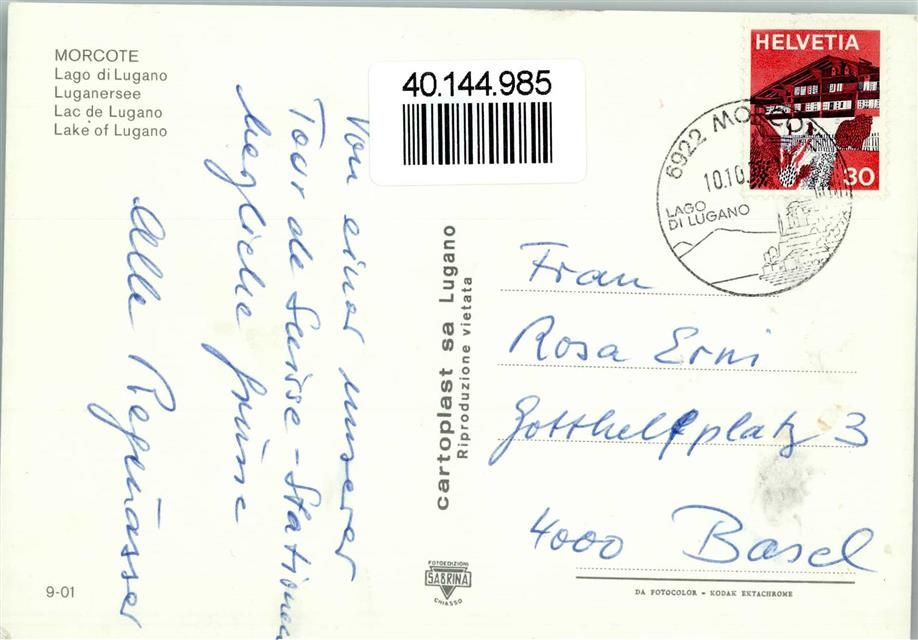 MORCOTE
Lago di Lugano
Luganersee
Lac de Lugano
Lake of Lugano
40.144.985
HELVETIA
30
6922 MORCOTE
10.10.
LAGO
DI LUGANO
Von einer unserer
Tour de Suisse - Stationen
herzliche grüsse
Alle
cartoplast sa Lugano
Riproduzione vietata
Frau
Rosa Erni
Gotthelfplatz 3
4000 Basel
9-01
FOTOEDIZIONI
SABRINA
CHIASSO
DA FOTOCOLOR - KODAK EKTACHROME